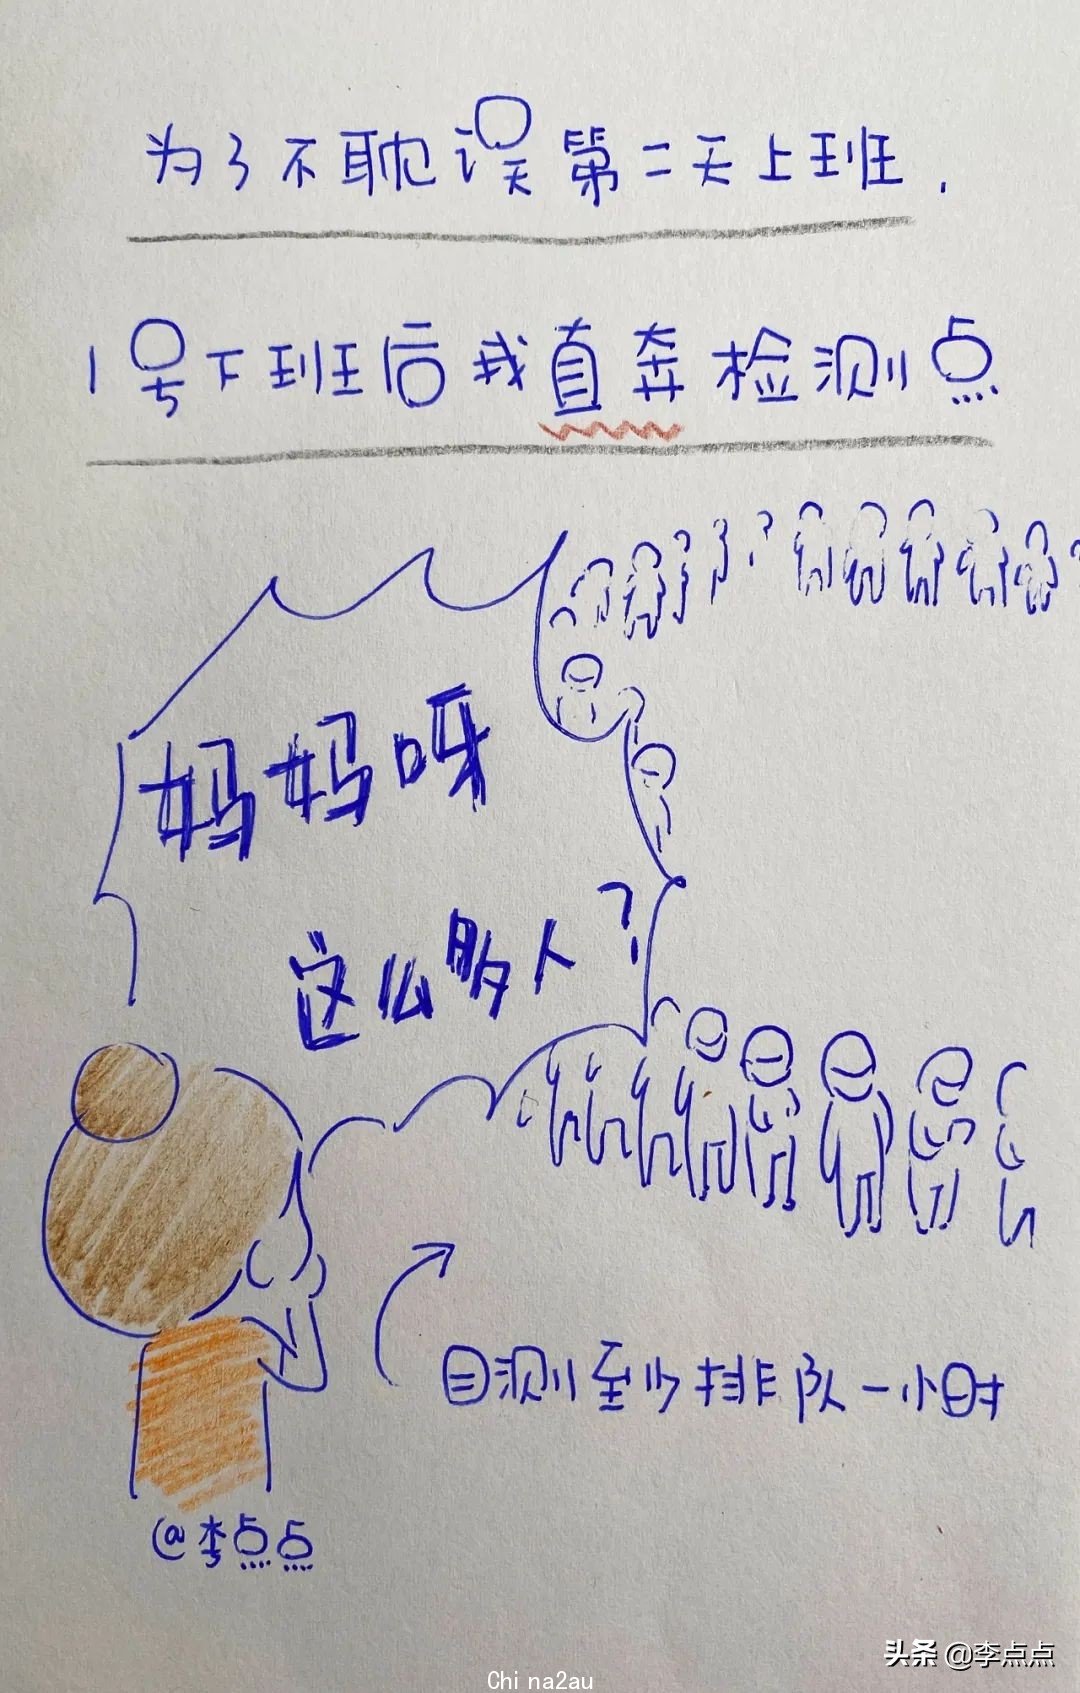 为了不耽误第二天上班.
1号下班后我直奔检测点
妈妈呀
这么多人?
目测至少排队一小时
@李点点
头条 @李点点
China2au